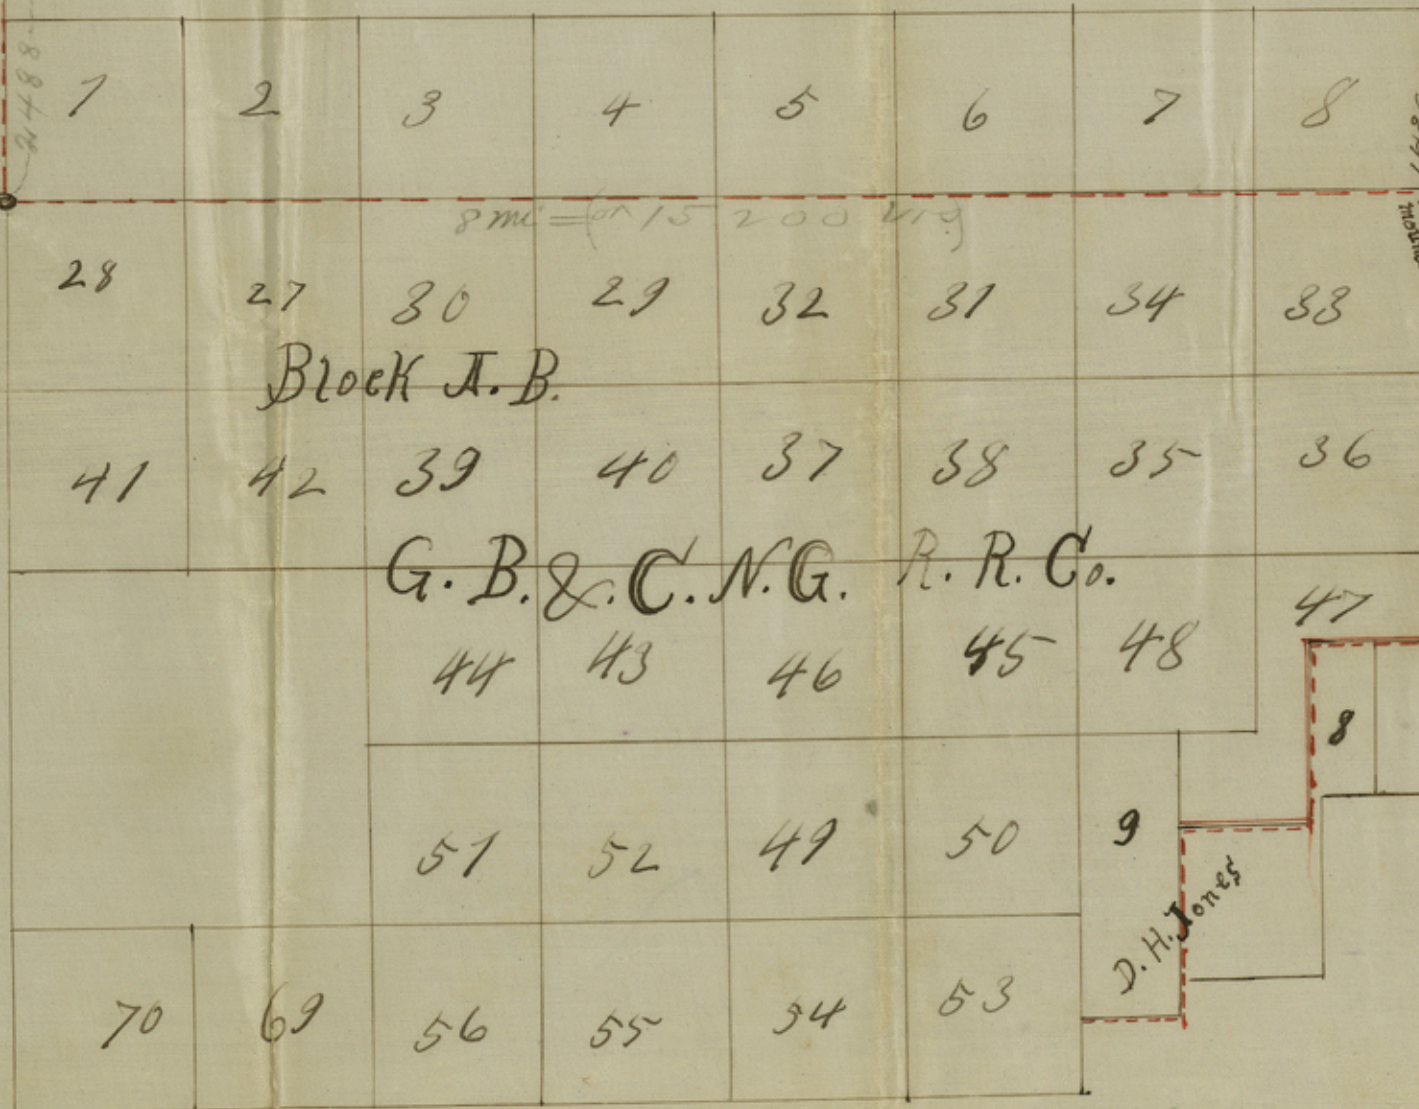 1 2 3 4 5 6 7 8
8 mi = (or 15 200 vrs)
28 27 30 29 32 31 34 33
Block A. B.
41 42 39 40 37 38 35 36
G. B. & C. N. G. R. R. Co.
47
44 43 46 45 48
8
51 52 49 50 9
D. H. Jones
70 69 56 55 54 53